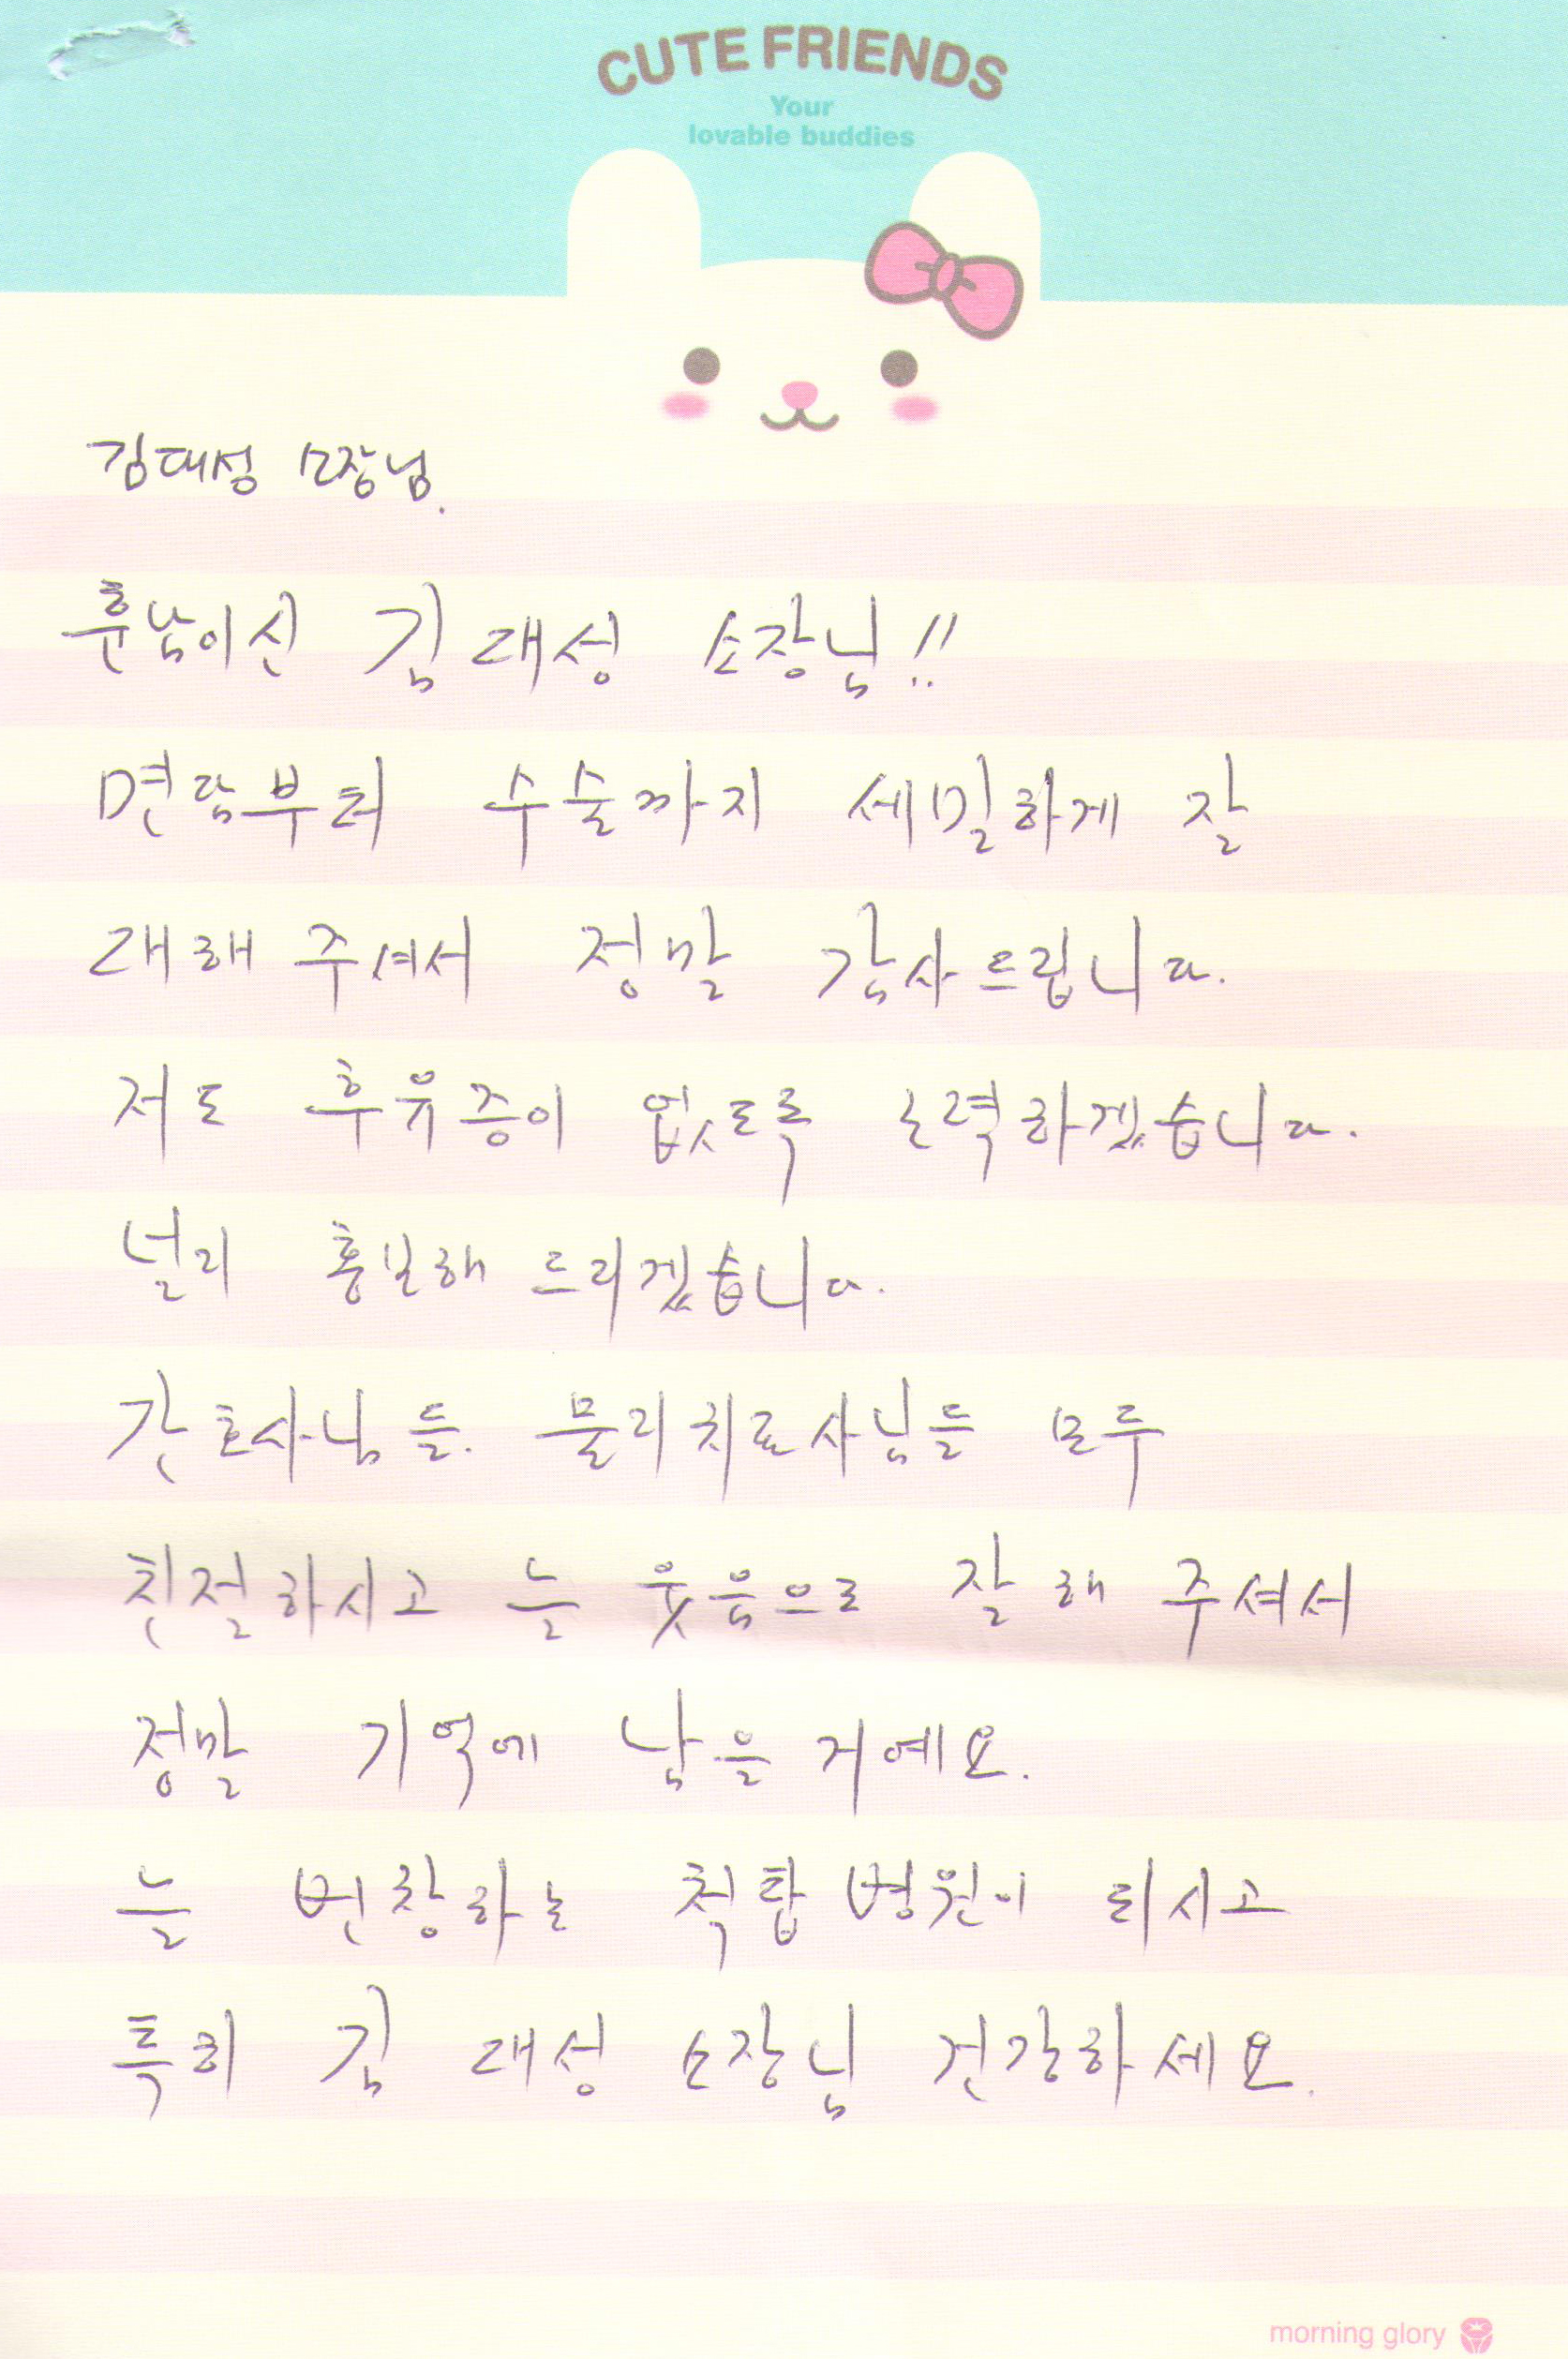 CUTE FRIENDS
Your
lovable buddies
김대성 소장님.
훈남이신 김대성 소장님!!
면담부터 수술까지 세밀하게 잘
대해 주셔서 정말 감사드립니다.
저도 후유증이 없도록 노력하겠습니다.
널리 홍보해 드리겠습니다.
간호사님들. 물리치료사님들 모두
친절하시고 늘 웃음으로 잘해 주셔서
정말 기억에 남을 거예요.
늘 번창하는 척탑병원이 되시고
특히 김대성 소장님 건강하세요.
morning glory